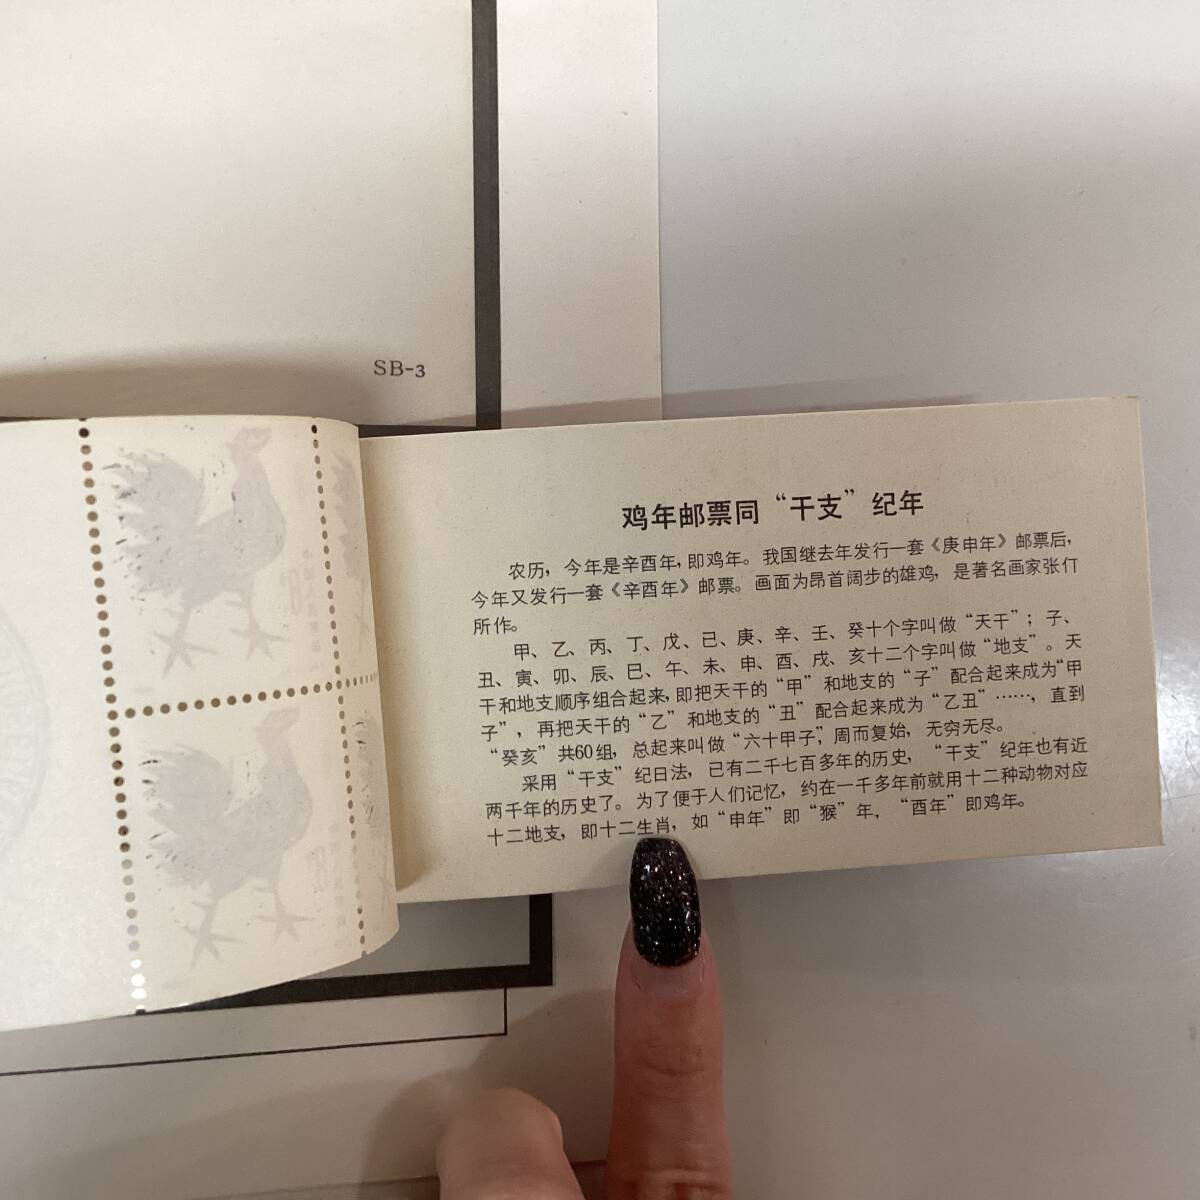 SB-3
鸡年邮票同“干支”纪年
农历，今年是辛酉年，即鸡年。我国继去年发行一套《庚申年》邮票后，
今年又发行一套《辛酉年》邮票。画面为昂首阔步的雄鸡，是著名画家张仃
所作。
甲、乙、丙、丁、戊、已、庚、辛、壬、癸十个字叫做“天干”；子、
丑、寅、卯、辰、巳、午、未、申、酉、戌、亥十二个字叫做“地支”。天
干和地支顺序组合起来，即把天干的“甲”和地支的“子”配合起来成为“甲
子”，再把天干的“乙”和地支的“丑”配合起来成为“乙丑”……，直到
“癸亥”共60组，总起来叫做“六十甲子”，周而复始，无穷无尽。
采用“干支”纪日法，已有二千七百多年的历史，“干支”纪年也有近
两千年的历史了。为了便于人们记忆，约在一千多年前就用十二种动物对应
十二地支，即十二生肖，如“申年”即“猴”年，“酉年”即鸡年。